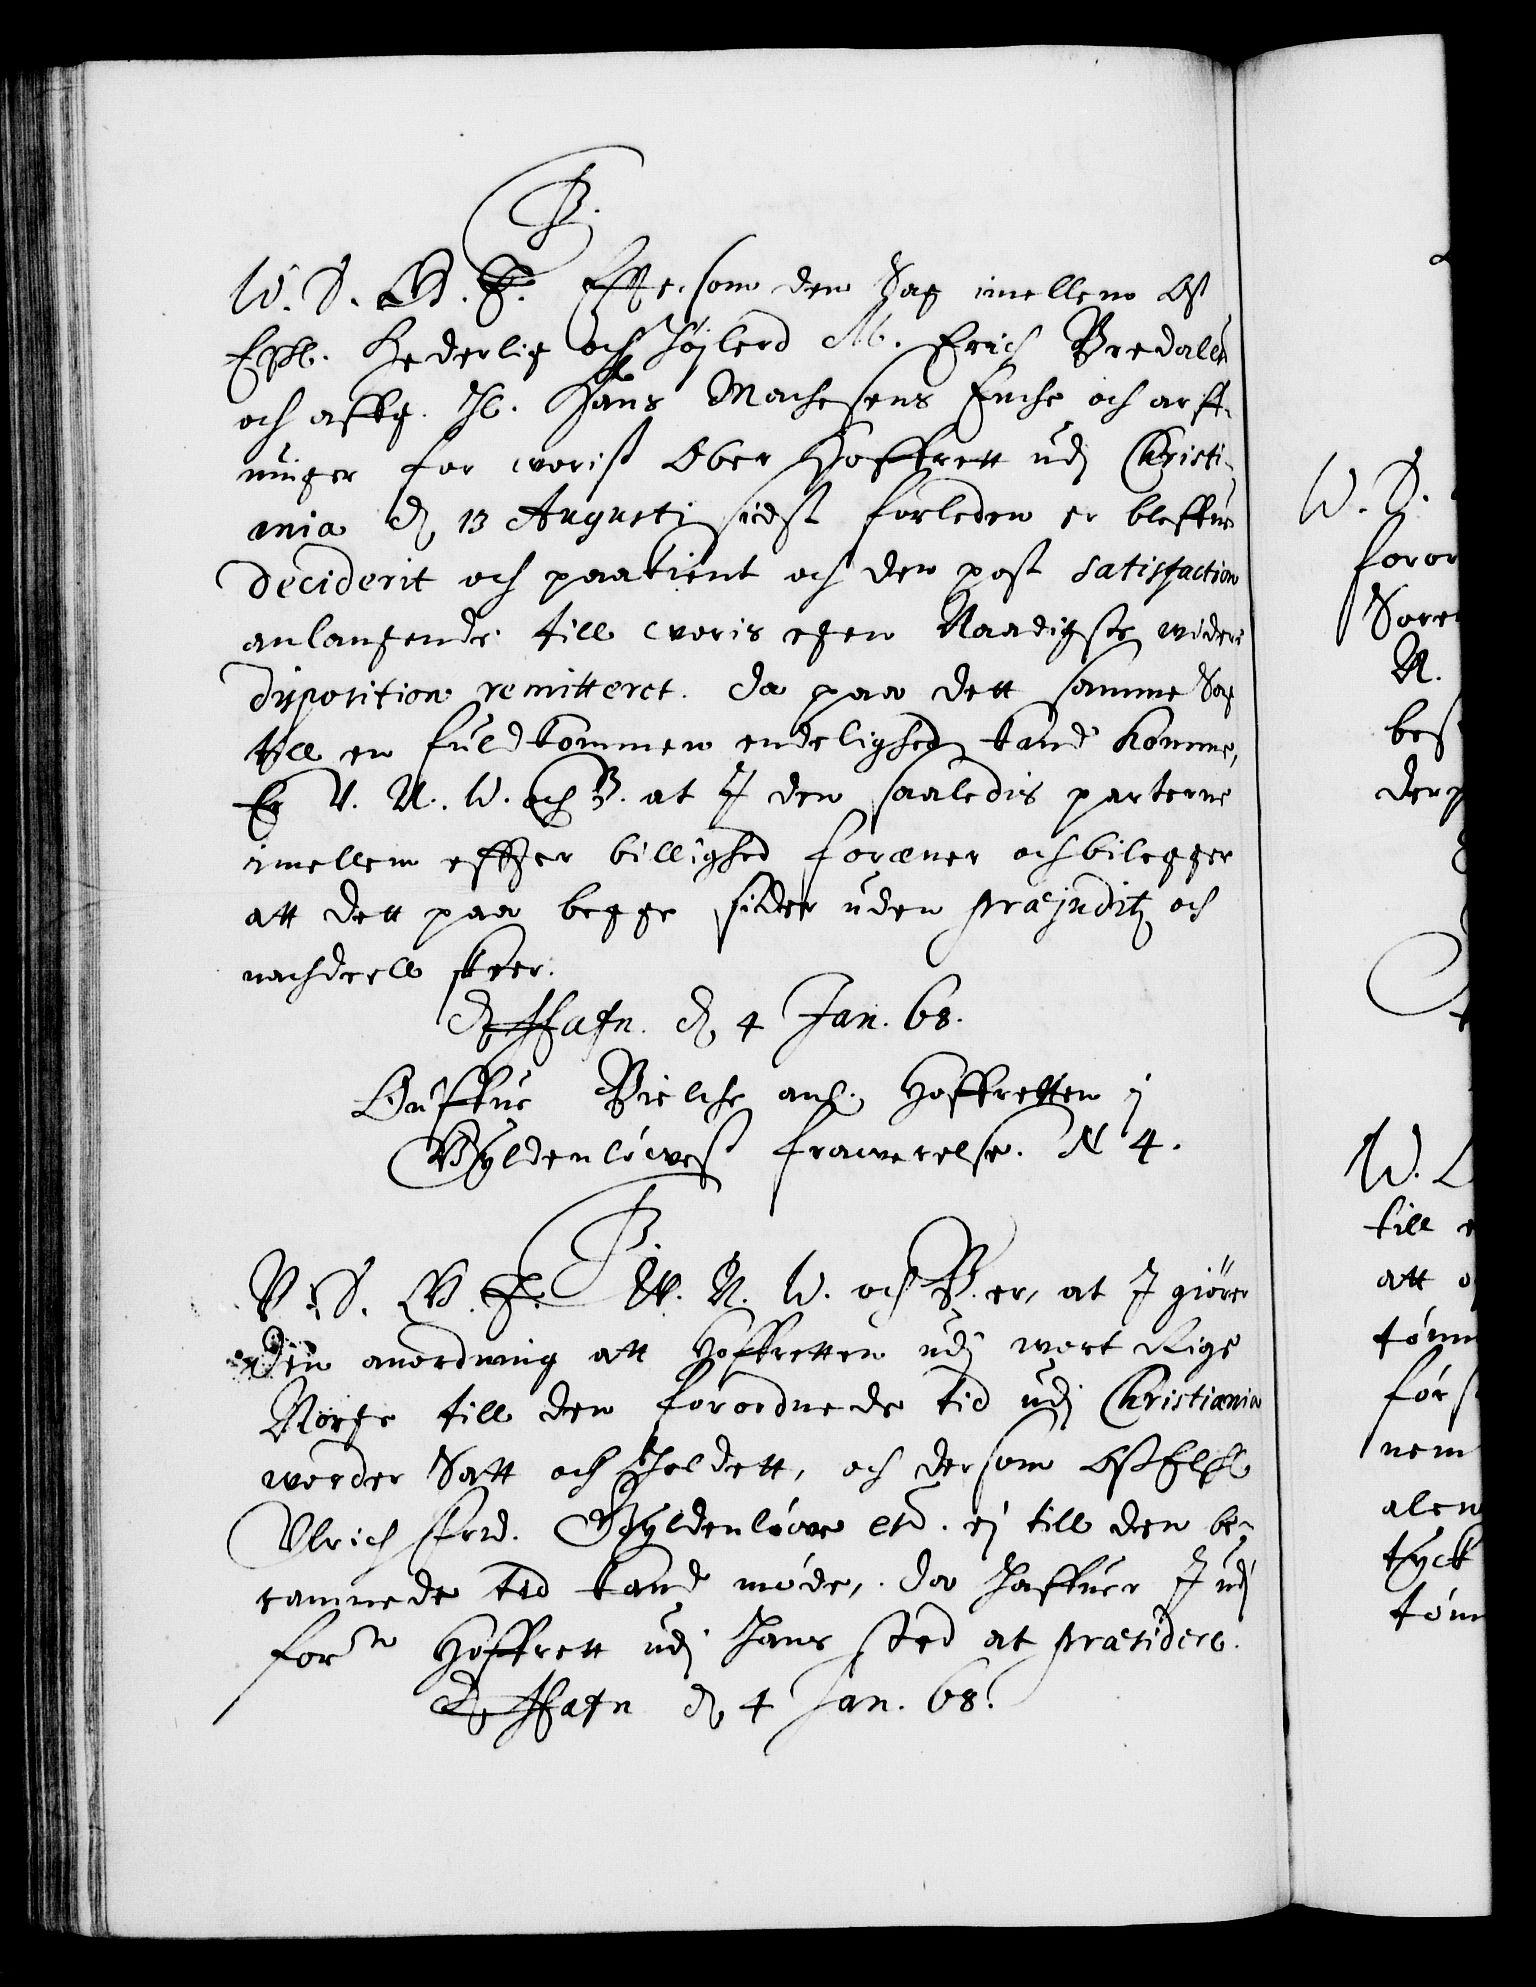 B.
W. S. G. T. Effersom den Sag imellem Os
Elskl. Hederlig och Højlerd M. Erich Bredalen
och affg. Sl. Hans Machesens Enche och arff-
uinger for worist Ober Hoffrett udj Christi-
ania d. 13 Augustj sidst forleden er bleffuen
decideret och paakient och den post satisfaction
anlangende till woris egen Naadigste widere
disposition remitteret. da paa dett samme Sag
till en fuldkommen endelighed kand komme,
Er V. N. W. och B. at J den saaledis parterne
imellem effter billighed foræner och bilegger
att dett paa begge sider uden præjuditz och
nachdeell skeer.
Hafn. d. 4 Jan. 68.
Ouffue Bielche anl. Hoffretten i
Gyldenløwes frawerelse. N 4.
B.
V. S. G. T. W. N. W. och B. er, at J giører
den anordning att Hoffretten udj wort Rige
Norge till den forordnede tid udj Christiania
worder Satt och Holdett, och dersom Os Elskl
Ulrich Frid. Gyldenløwe etc. ej till den be-
rammede tid kand møde, da haffuer J udj
forne Hoffrett udj hans sted at præsidere.
Hafn d. 4 Jan. 68.
W. S.
foror
Sore
N.
bes
der
W.
till
att
tønn
før
nem
alen
tyck
tøn